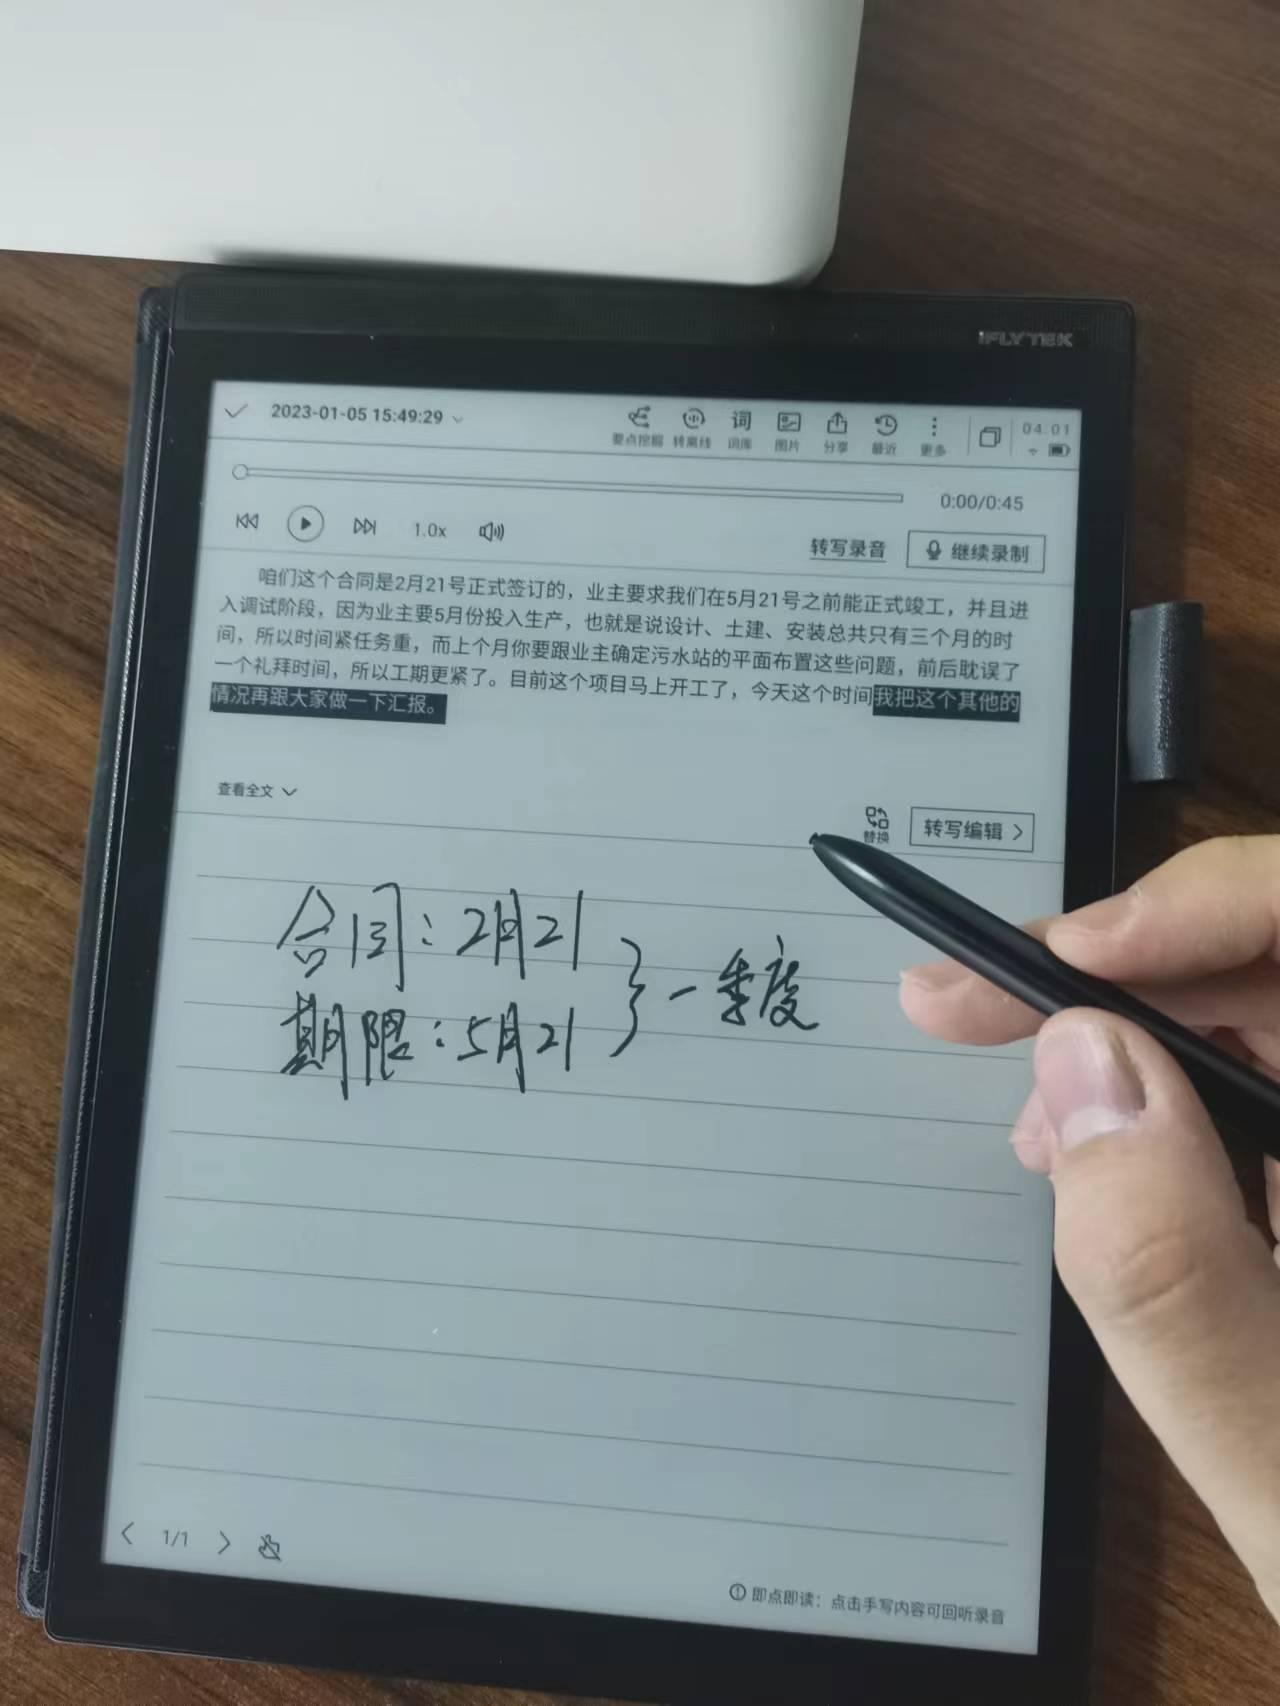 iFLYTEK
2023-01-05 15:49:29
要点挖掘 转离线 词库 图片 分享 最近 更多
词
04:01
0:00/0:45
1.0x
转写录音
继续录制
咱们这个合同是2月21号正式签订的，业主要求我们在5月21号之前能正式竣工，并且进
入调试阶段，因为业主要5月份投入生产，也就是说设计、土建、安装总共只有三个月的时
间，所以时间紧任务重，而上个月你要跟业主确定污水站的平面布置这些问题，前后耽误了
一个礼拜时间，所以工期更紧了。目前这个项目马上开工了，今天这个时间我把这个其他的
情况再跟大家做一下汇报。
查看全文
替换
转写编辑
合同：2月21
期限：5月21
}一季度
1/1
即点即读：点击手写内容可回听录音